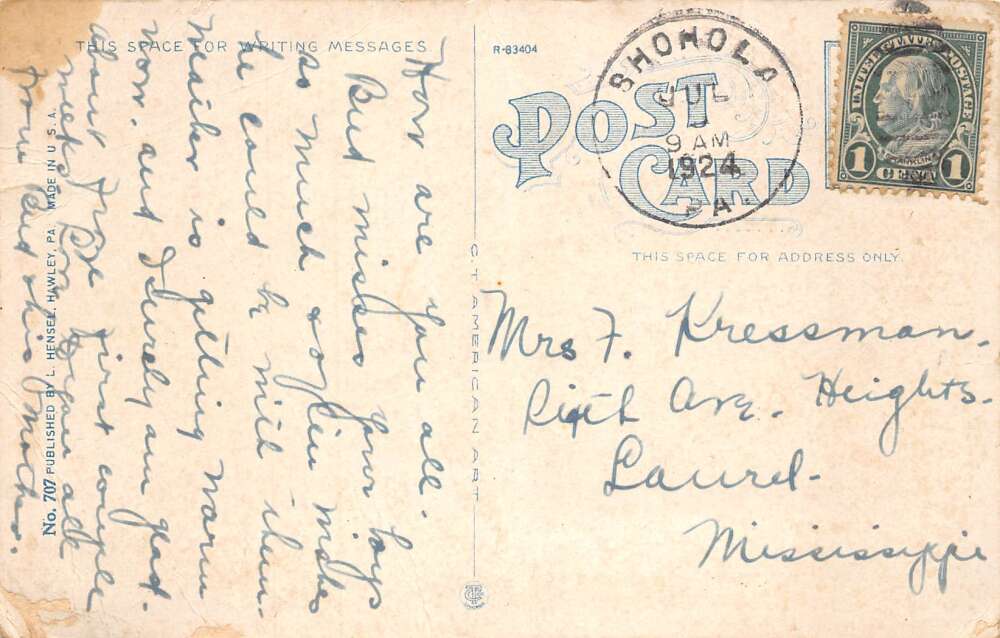 THIS SPACE FOR WRITING MESSAGES
How are you all.
But misses your boys
so much & often wishes
he could be with them.
Weather is getting warm
now. and surely am glad.
about froze first couple
weeks. Love to you all
from Bud & his Mother.
No. 707 PUBLISHED BY L. HENSEL, HAWLEY, PA. MADE IN U.S.A.
C. T. AMERICAN ART
R-83404
POST CARD
SHOHOLA
JUL
9 AM
1924
PA.
UNITED STATES POSTAGE
FRANKLIN
1 CENT 1
THIS SPACE FOR ADDRESS ONLY.
Mrs F. Kressman.
Ave. Heights.
Laurel.
Mississippi